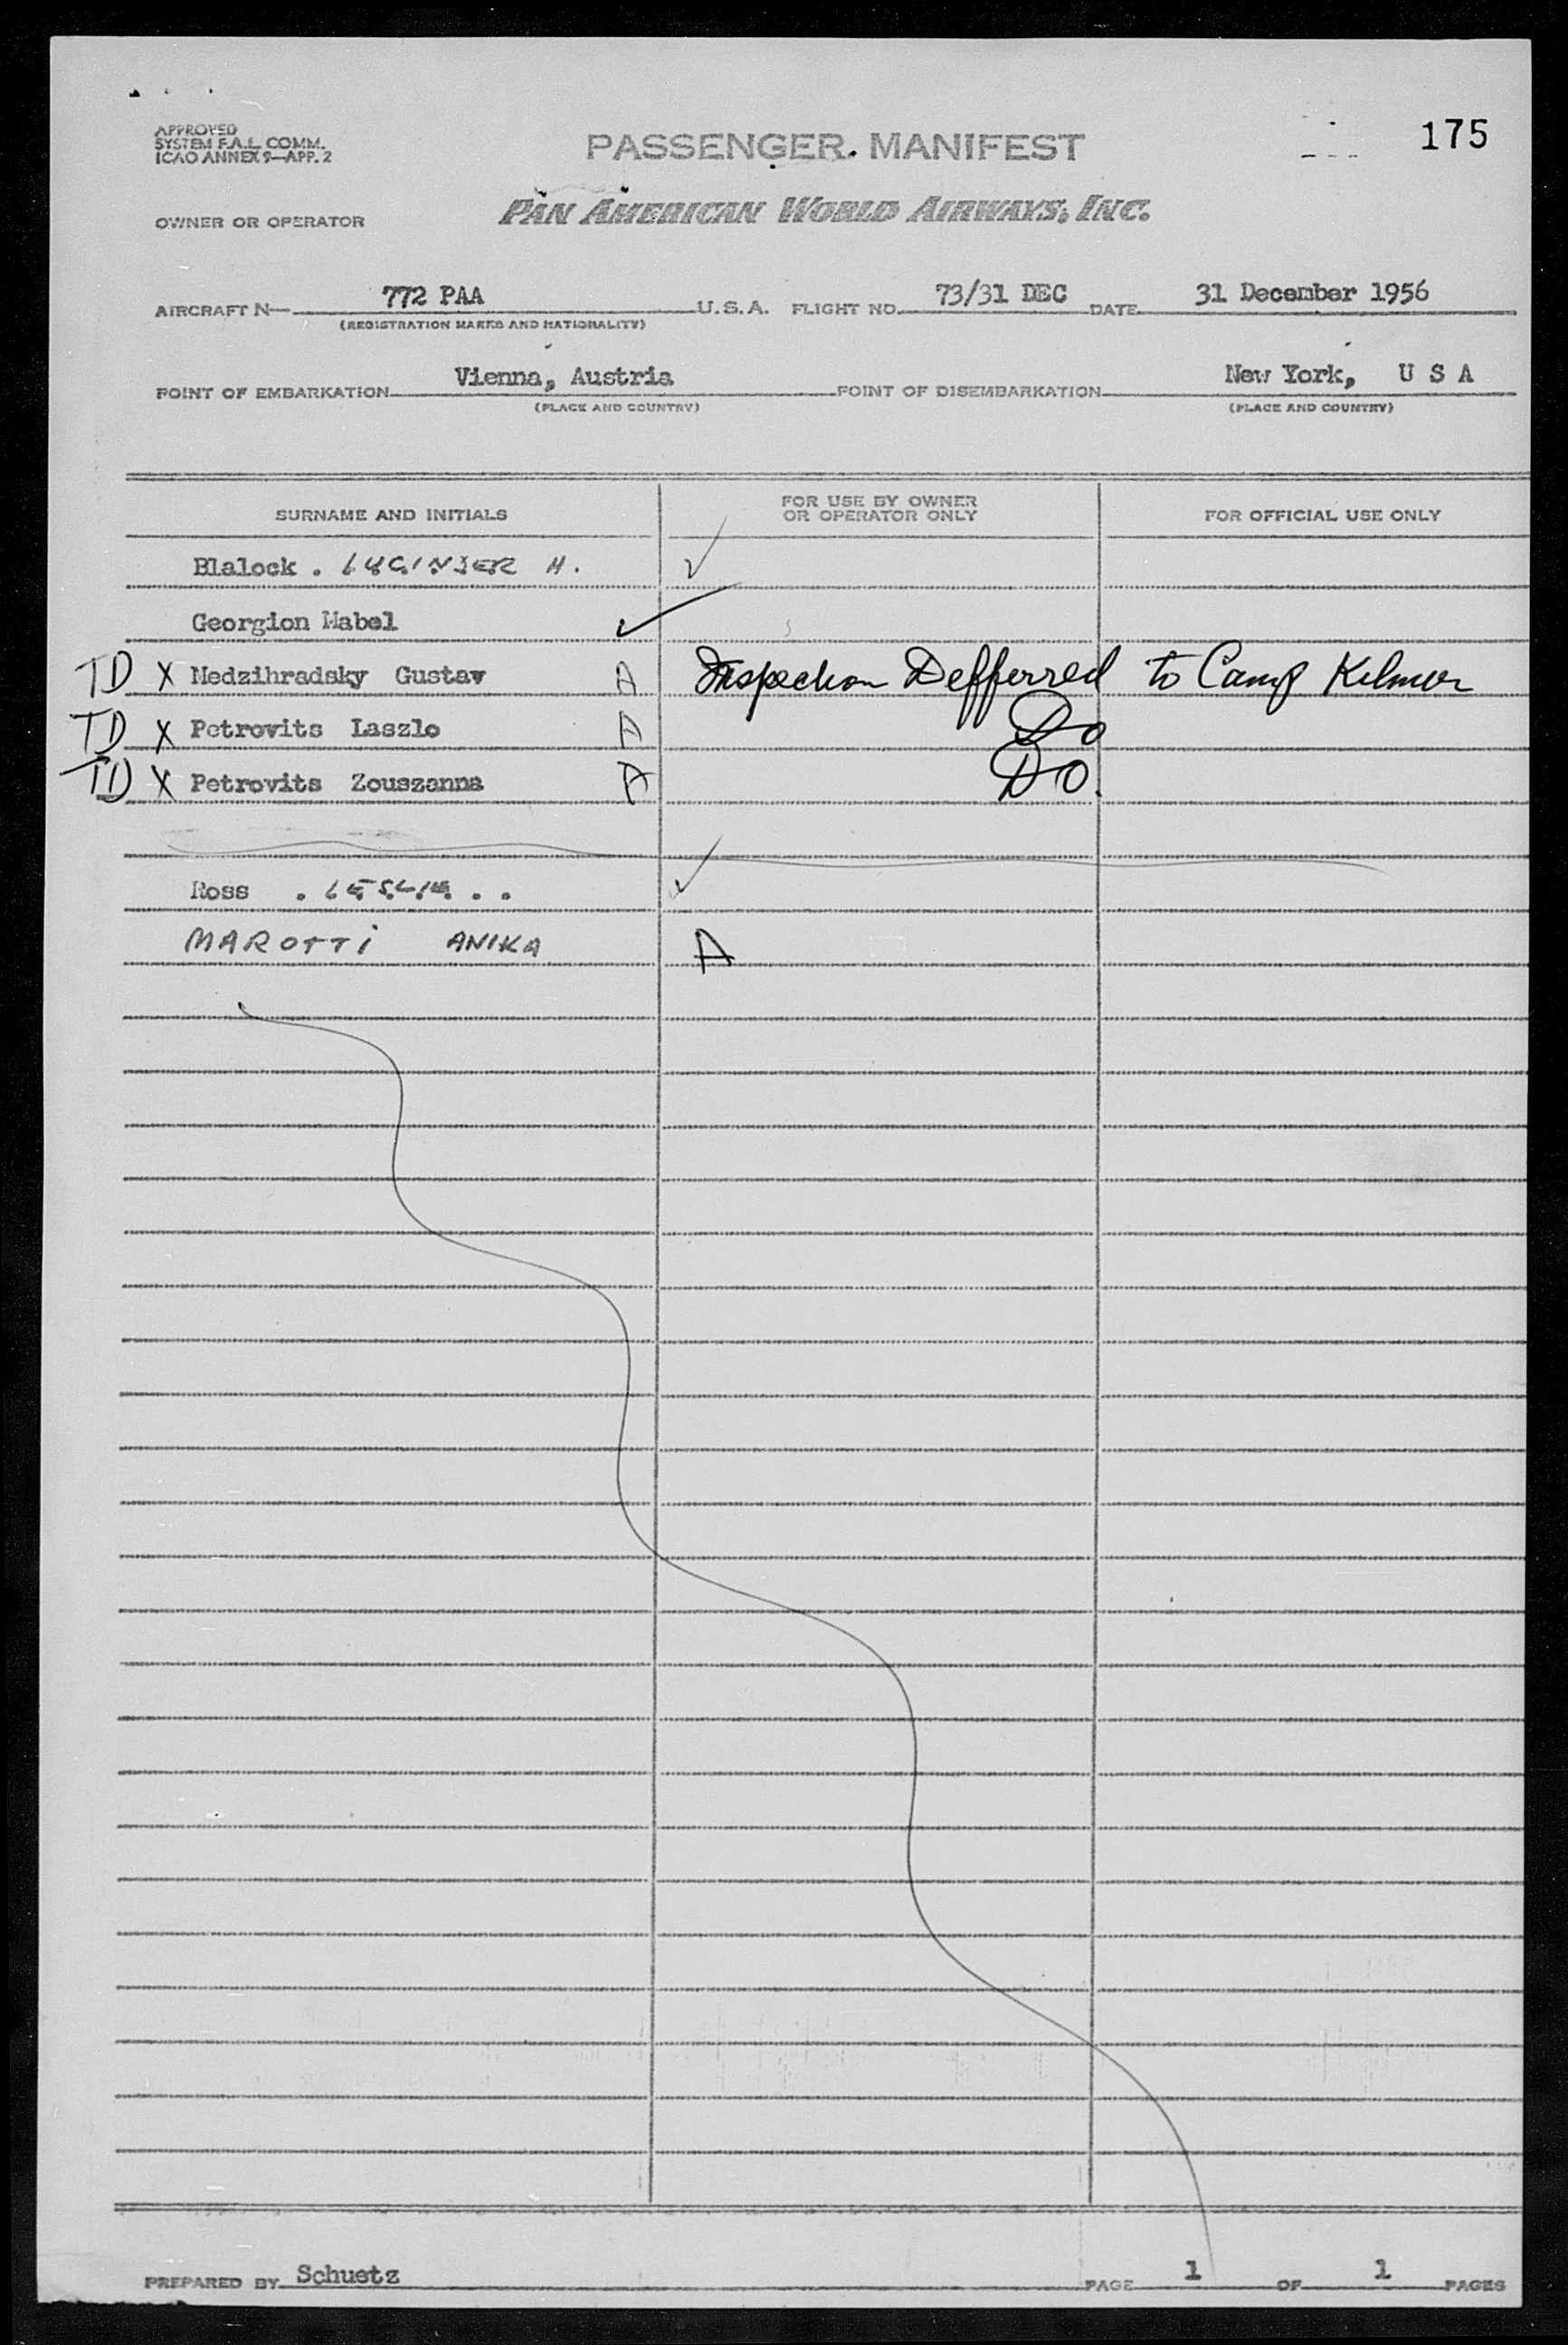 175
APPROVED
SYSTEM F.A.L. COMM.
ICAO ANNEX 9—APP. 2
PASSENGER MANIFEST
OWNER OR OPERATOR PAN AMERICAN WORLD AIRWAYS, INC.
AIRCRAFT N— 772 PAA U.S.A. FLIGHT NO. 73/31 DEC DATE 31 December 1956
(REGISTRATION MARKS AND NATIONALITY)
POINT OF EMBARKATION Vienna, Austria POINT OF DISEMBARKATION New York, U S A
(PLACE AND COUNTRY) (PLACE AND COUNTRY)
SURNAME AND INITIALS FOR USE BY OWNER OR OPERATOR ONLY FOR OFFICIAL USE ONLY
Blalock . H. ✓
Georgion Mabel ✓
TD X Medzihradsky Gustav A Inspection Defferred to Camp Kilmer
TD X Petrovits Laszlo A Do
TD X Petrovits Zouszanna A Do.
Ross . LESLIE . . ✓
MAROTTi ANIKA A
PREPARED BY Schuetz PAGE 1 OF 1 PAGES